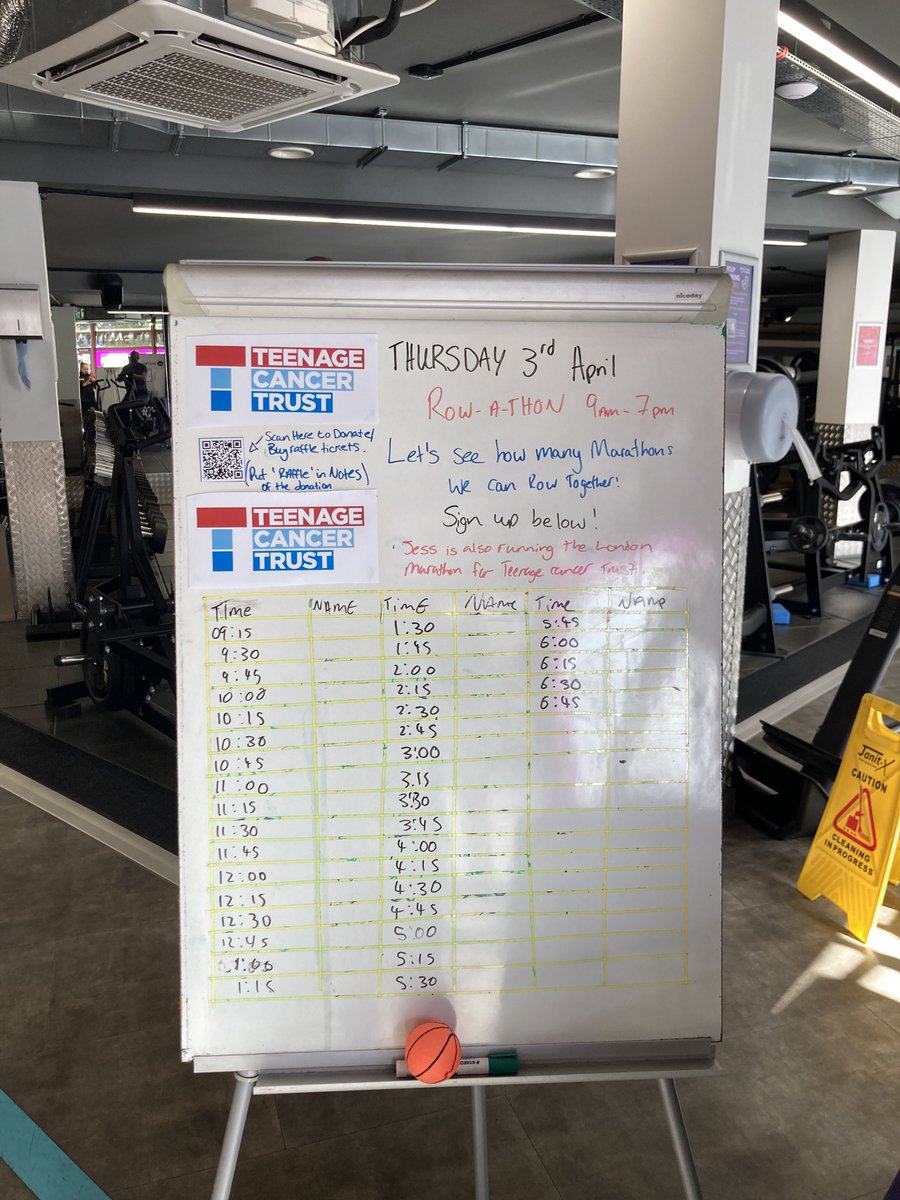 niceday
TEENAGE
CANCER
TRUST
THURSDAY 3rd April
ROW-A-THON 9am-7pm
Scan Here to Donate/
Buy raffle tickets.
(Put 'Raffle' in Notes)
of the donation
Let's see how many Marathons
we can Row Together!
TEENAGE
CANCER
TRUST
Sign up below!
Jess is also running the London
Marathon for Teenage cancer Trust
Time NAME Time NAME Time NAME
09:15 1:30 5:45
9:30 1:45 6:00
9:45 2:00 6:15
10:00 2:15 6:30
10:15 2:30 6:45
10:30 2:45
10:45 3:00
11:00 3:15
11:15 3:30
11:30 3:45
11:45 4:00
12:00 4:15
12:15 4:30
12:30 4:45
12:45 5:00
1:00 5:15
1:15 5:30
Janit-X
CAUTION
CLEANING
IN PROGRESS